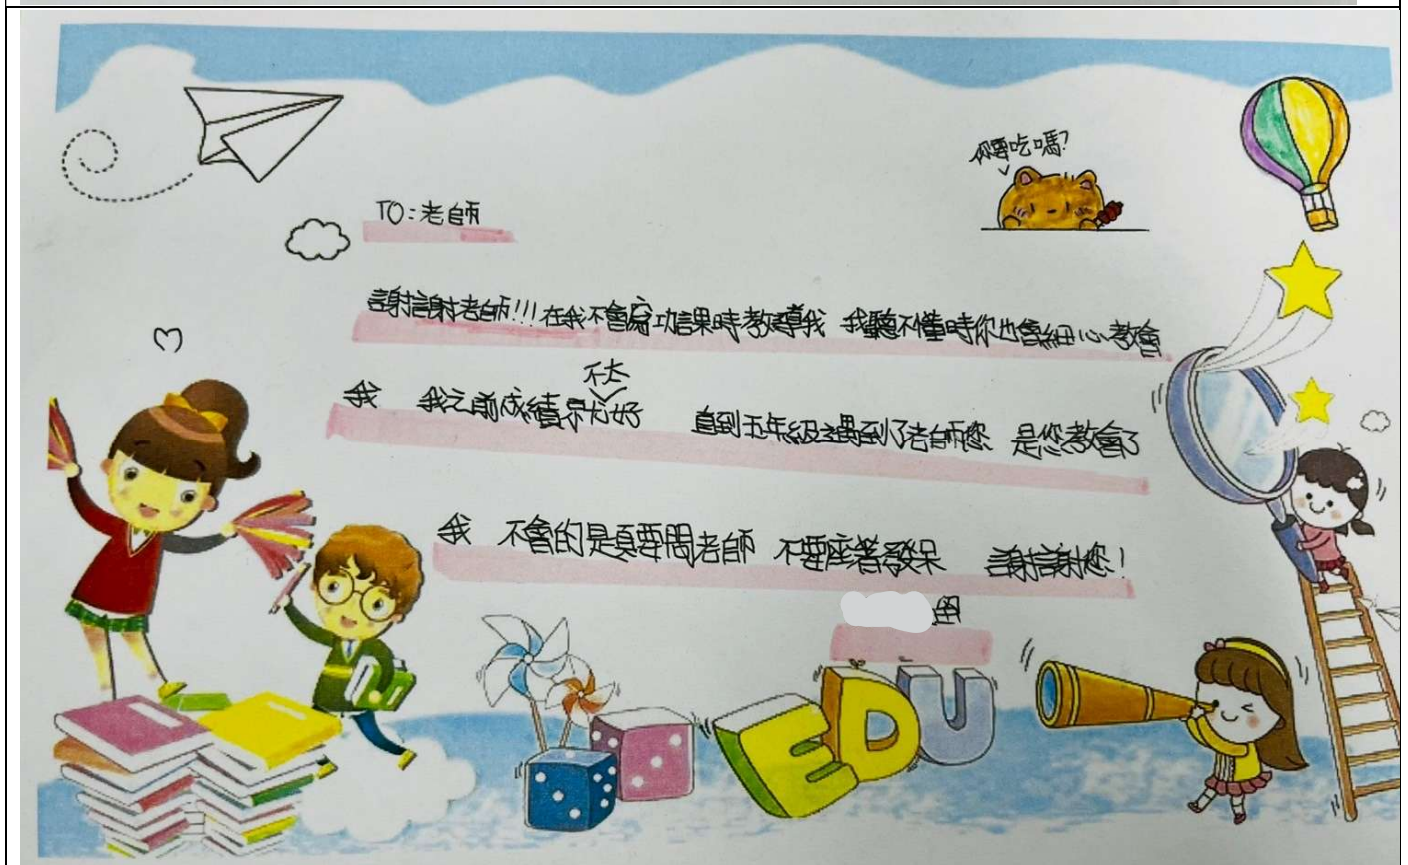 你要吃嗎?
TO:老師
謝謝老師!!!在我不會寫功課時教導我 我聽不懂時你也會細心教會
我 我之前成績不太好 直到五年級遇到了老師您 是您教會了
我 不會的是真要問老師 不要座著發呆 謝謝您!
EDU